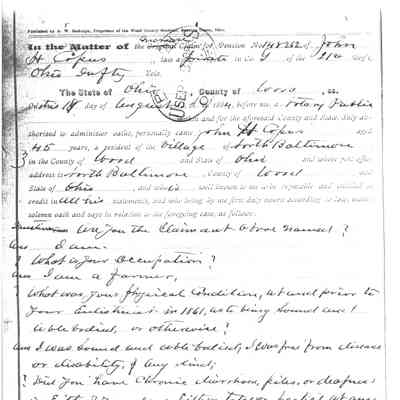 In the Matter of the Original Increase Claim for Pension No 148252 of John
H Copus late a Private in Co G of the 21st Reg't
Ohio Infty Vols.
The State of Ohio, County of Wood, ss.
this 18 day of August A. D. 1884, before me a Notary Public
within and for the aforesaid County and State, duly au-
thorized to administer oaths, personally came John H Copus aged
45 years, a resident of the Village of North Baltimore
in the County of Wood and State of Ohio and whose post office
address is North Baltimore, County of Wood and
State of Ohio, and who is well known to me to be reputable and entitled to
credit in all his statements, and who being by me first duly sworn according to law, made
solemn oath and says in relation to the foregoing case, as follows:
Question Are you the Claimant above named?
Ans I am.
? What is your Occupation?
Ans I am a farmer,
? What was your Physical Condition, at and prior to
your Enlistment in 1861, as to being Sound and
able bodied, or otherwise?
Ans I was Sound and able bodied, I was free from disease
or disability, of any kind;
? Did you have Chronic diarrhoea, piles, or deafness